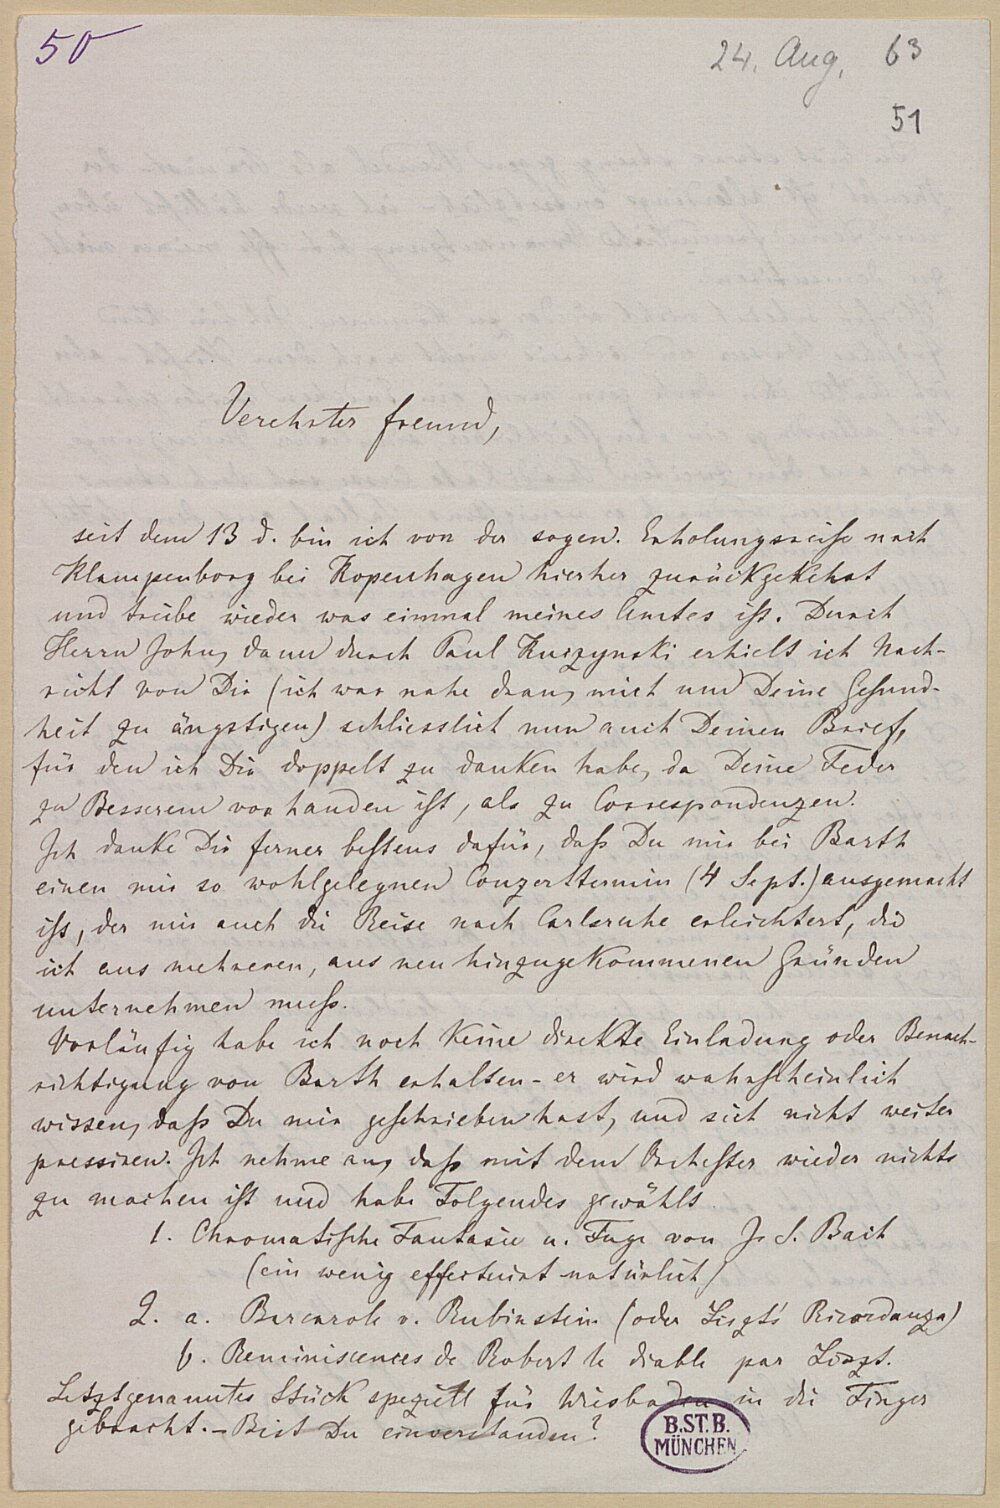 50
24. Aug. 63
51
Verehrter Freund,
seit dem 13 d. bin ich von der sogen. Erholungsreise nach
Klampenborg bei Kopenhagen hierher zurückgekehrt
und treibe wieder was einmal meines Amtes ist. Durch
Herrn John, dann durch Paul Kuczynski erhielt ich Nach-
richt von Dir (ich war nahe dran, mich um Deine Gesund-
heit zu ängstigen) schliesslich nun auch Deinen Brief,
für den ich Dir doppelt zu danken habe, da Deine Feder
zu Besserem vorhanden ist, als zu Correspondenzen.
Ich danke Dir ferner bestens dafür, daß Du mir bei Barth
einen mir so wohlgelegnen Conzerttermin (4 Sept.) ausgemacht
ist, der mir auch die Reise nach Carlsruhe erleichtert, die
ich aus mehreren, aus neu hinzugekommenen Gründen
unternehmen muß.
Vorläufig habe ich noch keine direkte Einladung oder Benach-
richtigung von Barth erhalten – er wird wahrscheinlich
wissen, daß Du mir geschrieben hast, und sich nicht weiter
pressiren. Ich nehme an, daß mit dem Orchester wieder nichts
zu machen ist und habe Folgendes gewählt.
1. Chromatische Fantasie u. Fuge von J. S. Bach
(ein wenig effectuirt natürlich)
2. a. Barcarole v. Rubinstein (oder Liszt's Ricordanza)
b. Reminiscences de Robert le diable par Liszt.
Letztgenanntes Stück speziell für Wiesbaden in die Finger
gebracht. – Bist Du einverstanden?
B.ST.B.
MÜNCHEN